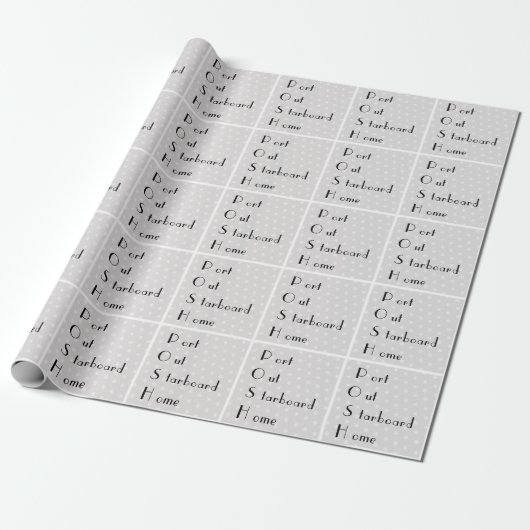 Port
Out
Starboard
Home
Port
Out
Starboard
Home
Port
Out
Starboard
Home
Port
Out
Starboard
Home
Port
Out
Starboard
Home
Port
Out
Starboard
Home
Port
Out
Starboard
Home
Port
Out
Starboard
Home
Port
Out
Starboard
Home
Port
Out
Starboard
Home
Port
Out
Starboard
Home
Port
Out
Starboard
Home
Port
Out
Starboard
Home
Port
Out
Starboard
Home
Port
Out
Starboard
Home
Port
Out
Starboard
Home
Port
Out
Starboard
Home
Port
Out
Starboard
Home